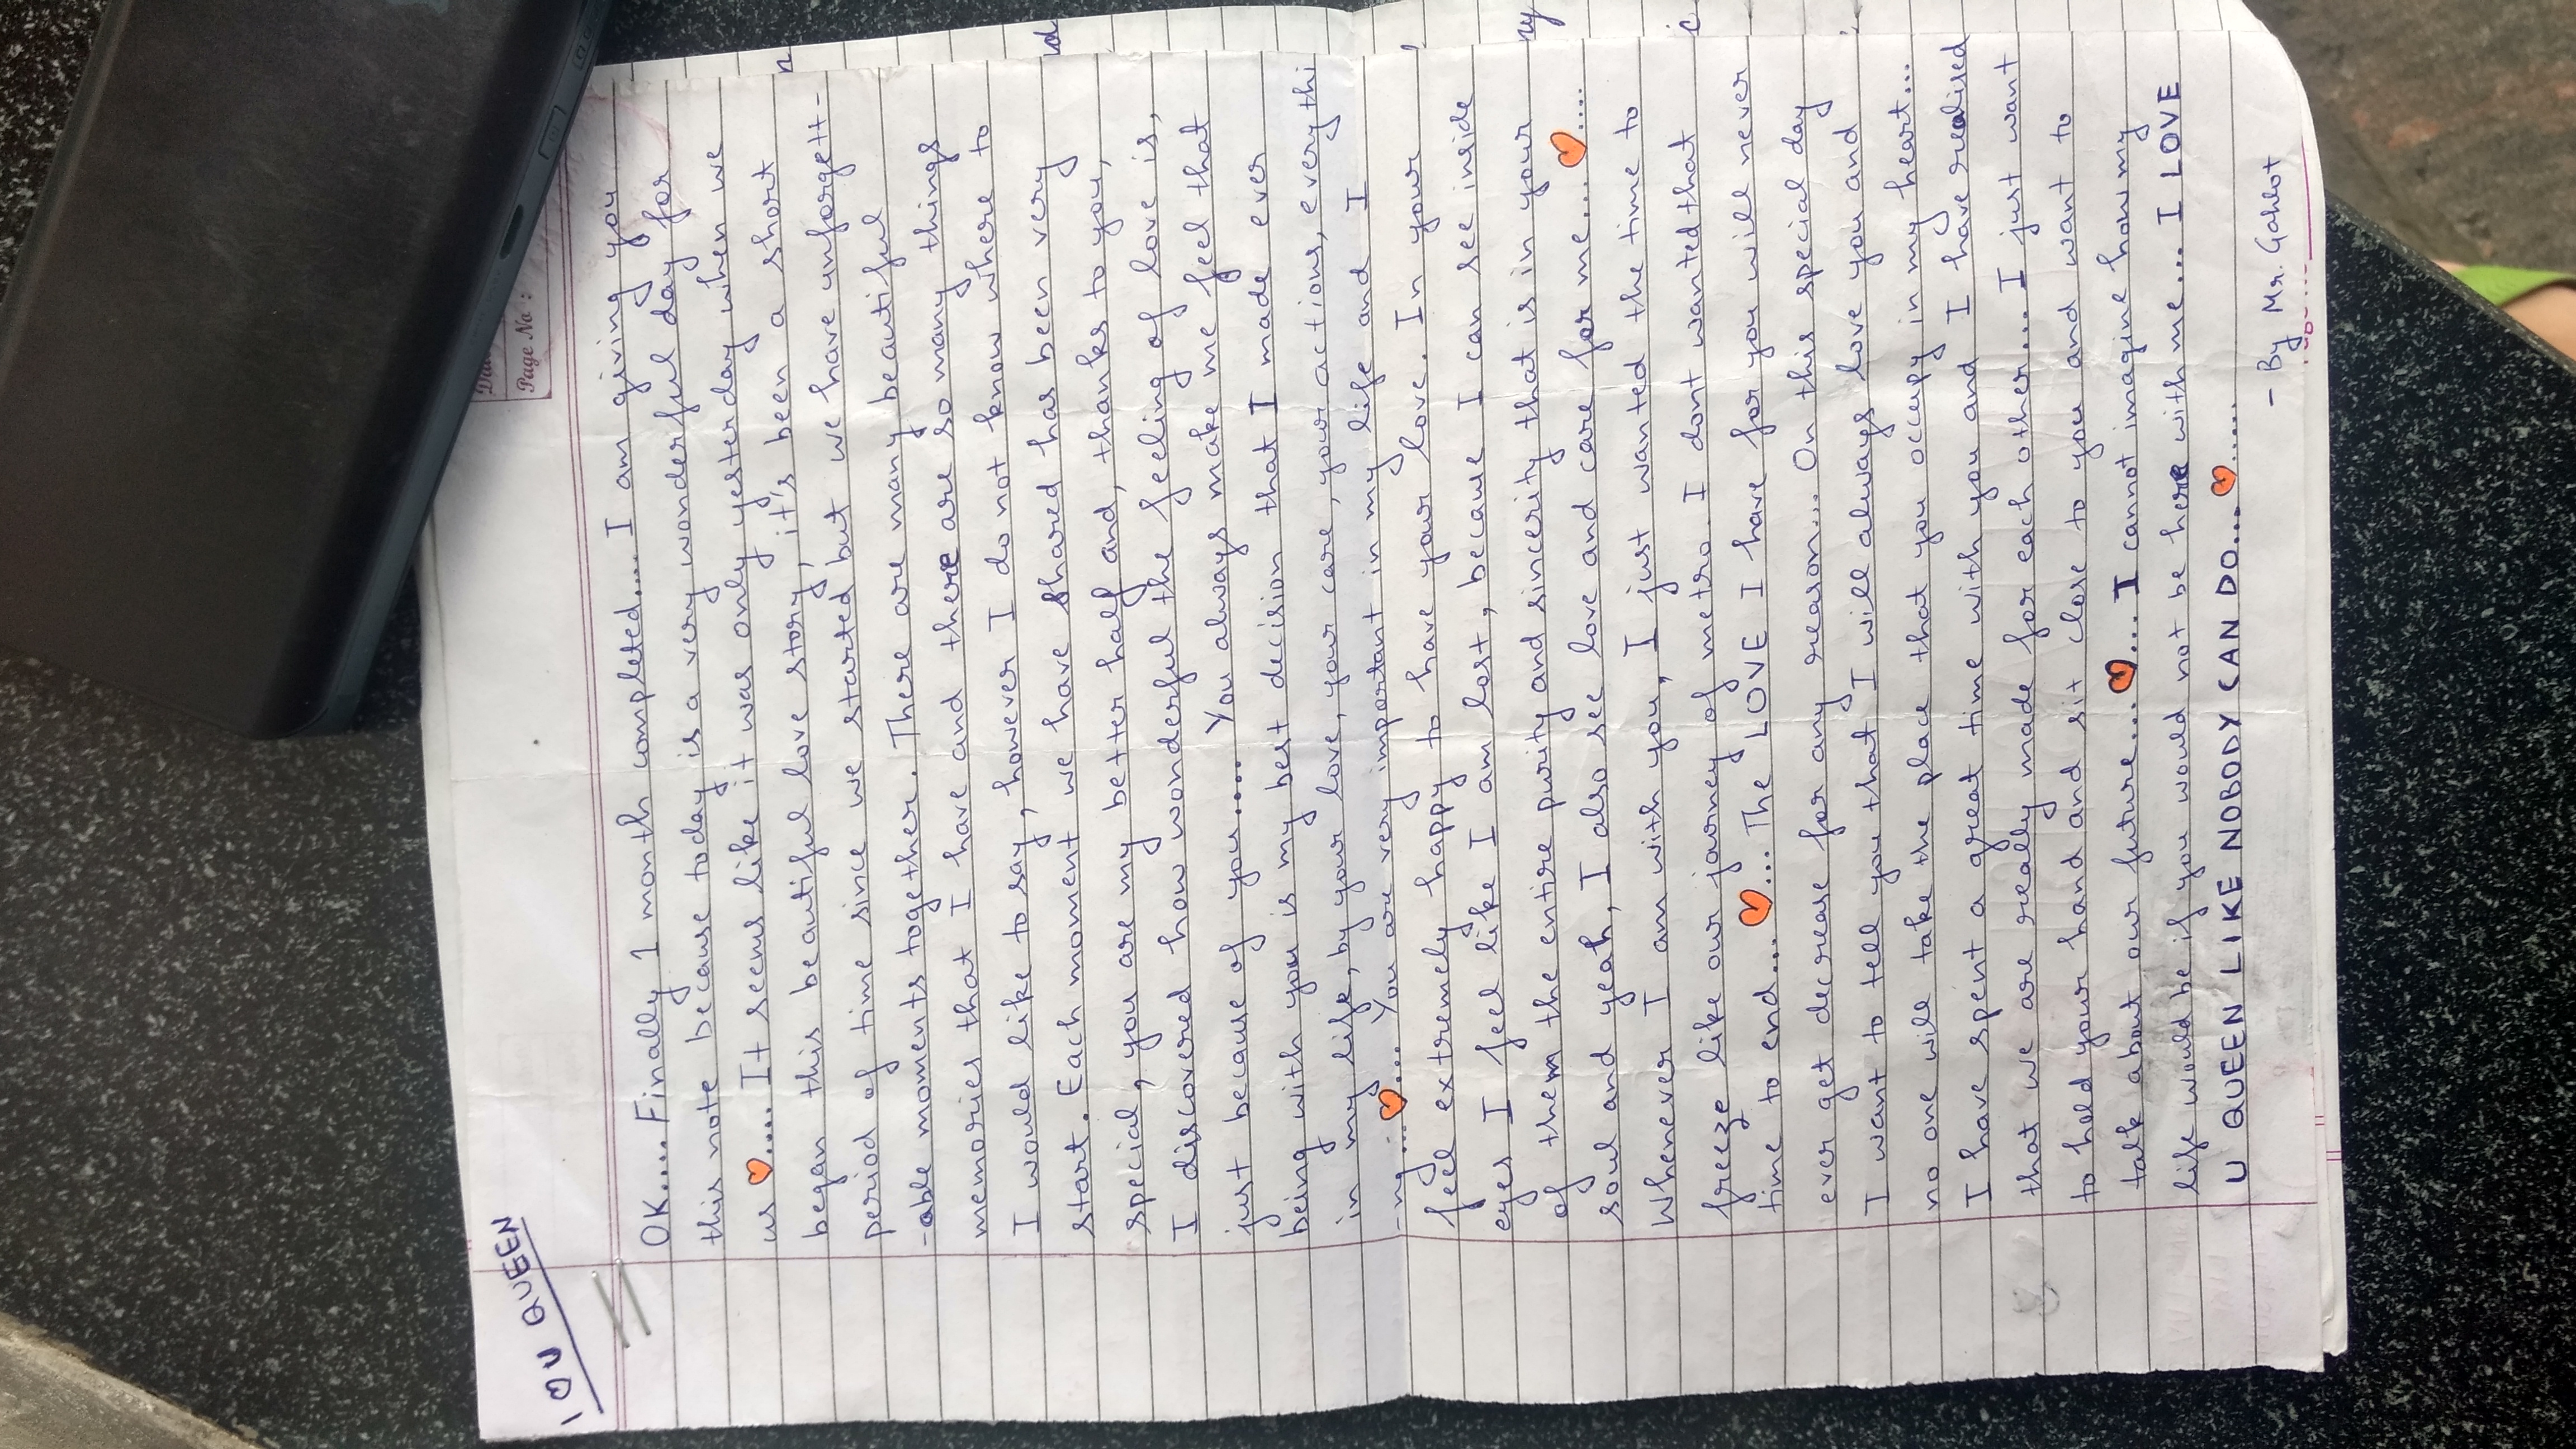 I ♡ U QUEEN
Page No :
OK.... Finally 1 month completed.... I am giving you
this note because today is a very wonderful day for
us ♡..... It seems like it was only yesterday when we
began this beautiful love story, it's been a short
period of time since we started but we have unforgett-
-able moments together. There are many beautiful
memories that I have and there are so many things
I would like to say, however I do not know where to
start. Each moment we have shared has been very
special, you are my better half and, thanks to you,
I discovered how wonderful the feeling of love is,
just because of you..... You always make me feel that
being with you is my best decision that I made ever
in my life, by your love, your care, your actions, everythi
-ng... ♡.... You are very important in my life and I
feel extremely happy to have your love. In your
eyes I feel like I am lost, because I can see inside
of them the entire purity and sincerity that is in your
soul and yeah, I also see love and care for me.... ♡....
Whenever I am with you, I just wanted the time to
freeze like our jarney of metro. I dont wanted that
time to end.... ♡... The LOVE I have for you will never
ever get decrease for any reason... On this special day
I want to tell you that I will always love you and
no one will take the place that you occupy in my heart...
I have spent a great time with you and I have realised
that we are really made for each other... I just want
to hold your hand and sit close to you and want to
talk about our future... ♡... I cannot imagine how my
life would be if you would not be here with me... I LOVE
U QUEEN LIKE NOBODY CAN DO... ♡.....
- By Mr. Gahlot